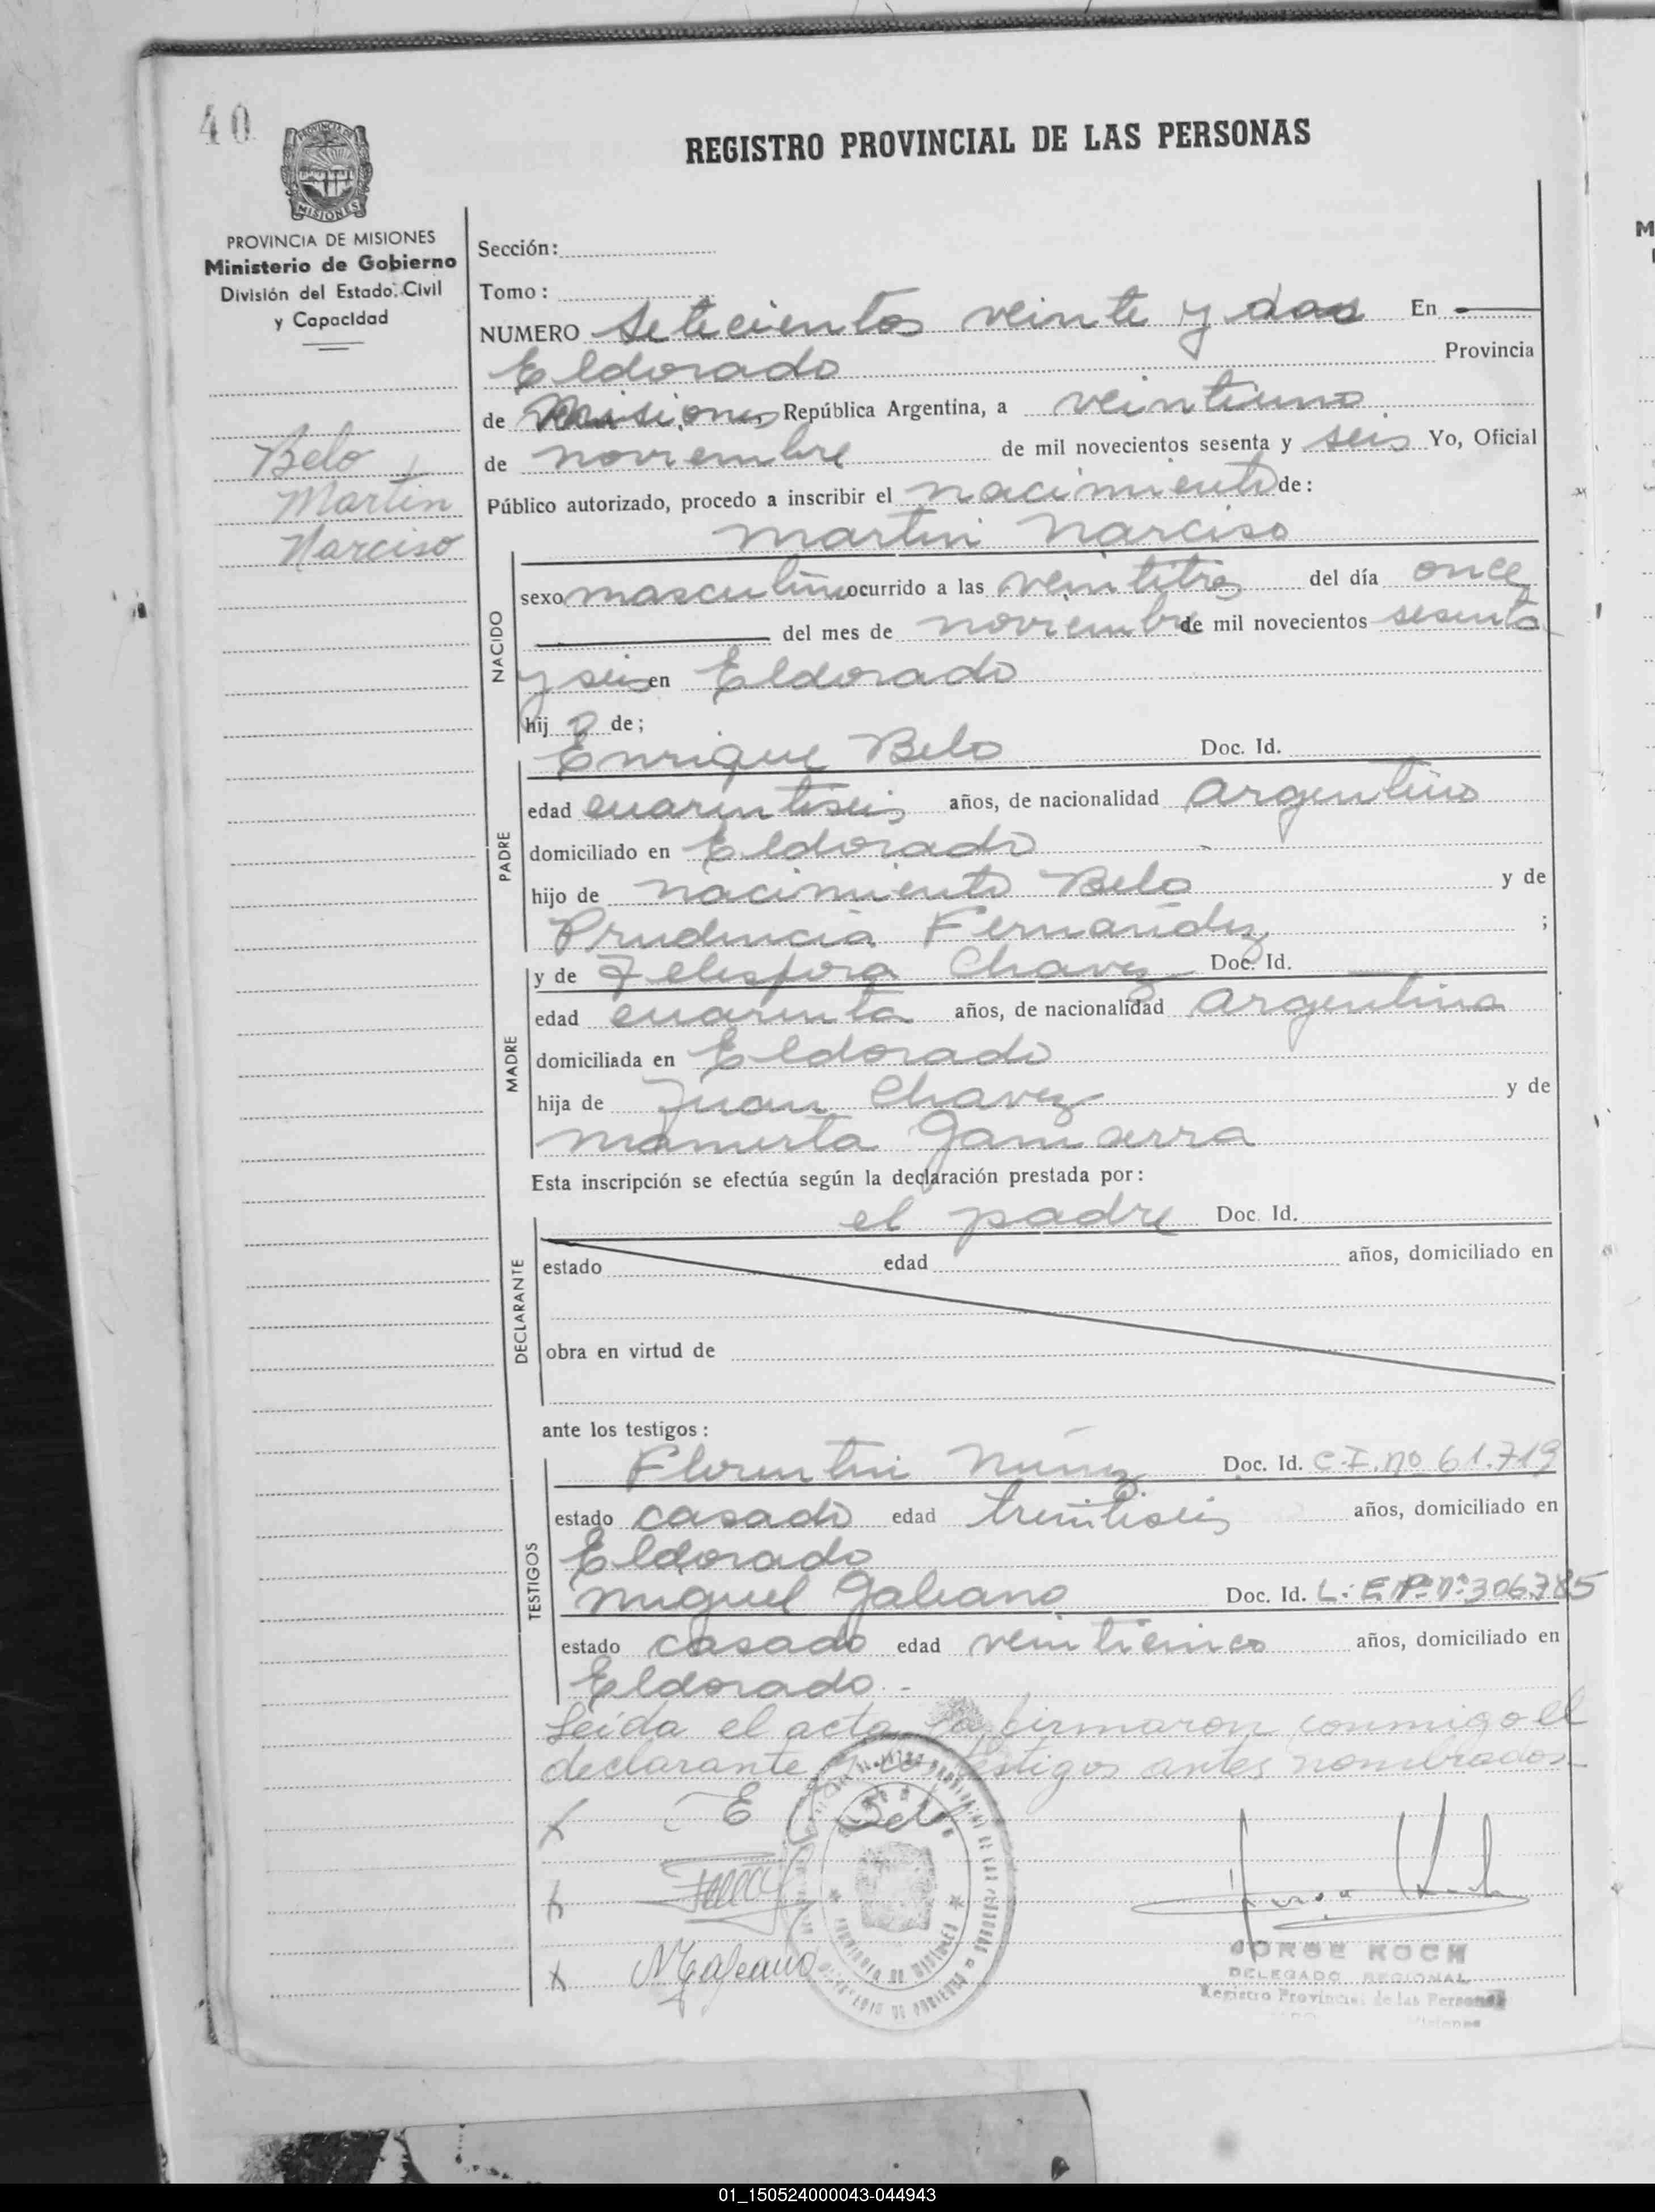 40
REGISTRO PROVINCIAL DE LAS PERSONAS
MISIONES
PROVINCIA DE MISIONES
Ministerio de Gobierno
División del Estado Civil
y Capacidad
Belo
Martin
Narciso
Sección:
Tomo:
NUMERO setecientos veinte y dos En
Eldorado Provincia
de Misiones República Argentina, a veintiuno
de noviembre de mil novecientos sesenta y seis Yo, Oficial
Público autorizado, procedo a inscribir el nacimiento de:
Martin Narciso
NACIDO
sexo masculino ocurrido a las veintitres del día once
del mes de noviembre de mil novecientos sesenta
y seis en Eldorado
hij o de;
PADRE
Enrique Belo Doc. Id.
edad cuarentiseis años, de nacionalidad argentino
domiciliado en Eldorado
hijo de nacimiento Belo y de
Prudencia Fernandez ;
MADRE
y de Telesfora Chavez Doc. Id.
edad cuarenta años, de nacionalidad argentina
domiciliada en Eldorado
hija de Juan Chavez y de
mamerta
Esta inscripción se efectúa según la declaración prestada por:
DECLARANTE
el padre Doc. Id.
estado edad años, domiciliado en
obra en virtud de
ante los testigos:
TESTIGOS
Florentin Nuñez Doc. Id. C.I. no 61.719
estado casado edad trentiseis años, domiciliado en
Eldorado
miguel Galeano Doc. Id. L. E. P. nº 306.785
estado casado edad veinticinco años, domiciliado en
Eldorado.-
Leida el acta la firmaron conmigo el
declarante y los testigos antes nombrados-
x E Belo
x
x MGaleano
JORGE KOCH
DELEGADO REGIONAL
Registro Provincial de las Personas
Misiones
01_150524000043-044943